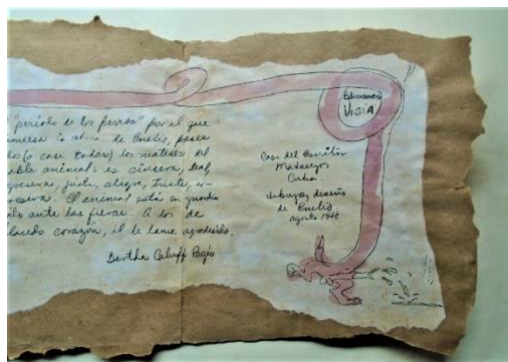 "período de los perros" por el que
la obra de Emilio, pasea
(o casi todos) los matices del
animal: es sincera, leal,
justa, alegre, triste,
El animal está en guardia
ante las fieras. A los de
corazón, él le lame agradecido.
Bertha Caluff Pagés
Ediciones
VIGÍA
Casa del Escritor
Matanzas
Cuba
dibujos, diseño
de Emilio
agosto 1988